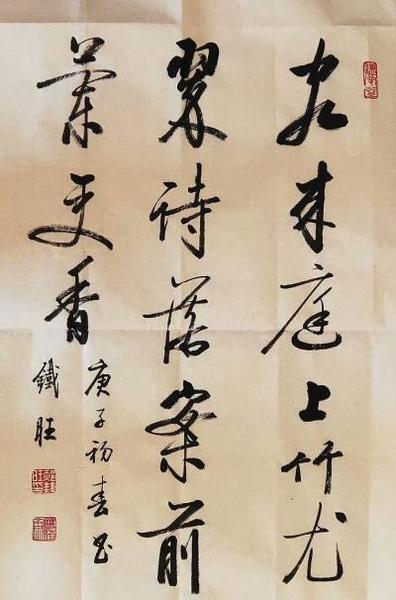 客来庭上竹尤
翠诗落案前
蘭更香
庚子初春书
鐵旺